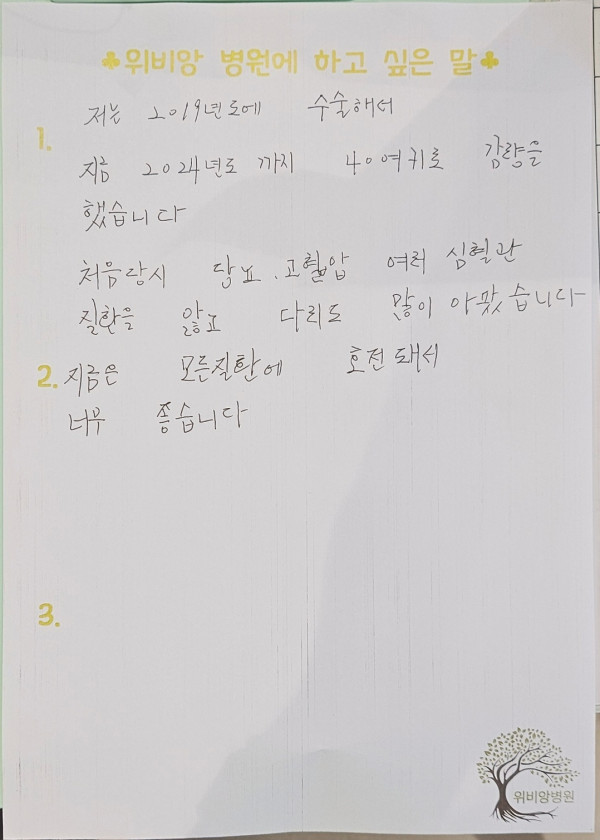 ♣위비앙 병원에 하고 싶은 말♣
1.
저는 2019년도에 수술해서
지금 2024년도 까지 40여키로 감량을
했습니다
처음당시 당뇨, 고혈압 여러 심혈관
질환을 앓고 다리도 많이 아팠습니다
2. 지금은 모든질환에 호전돼서
너무 좋습니다
3.
위비앙병원